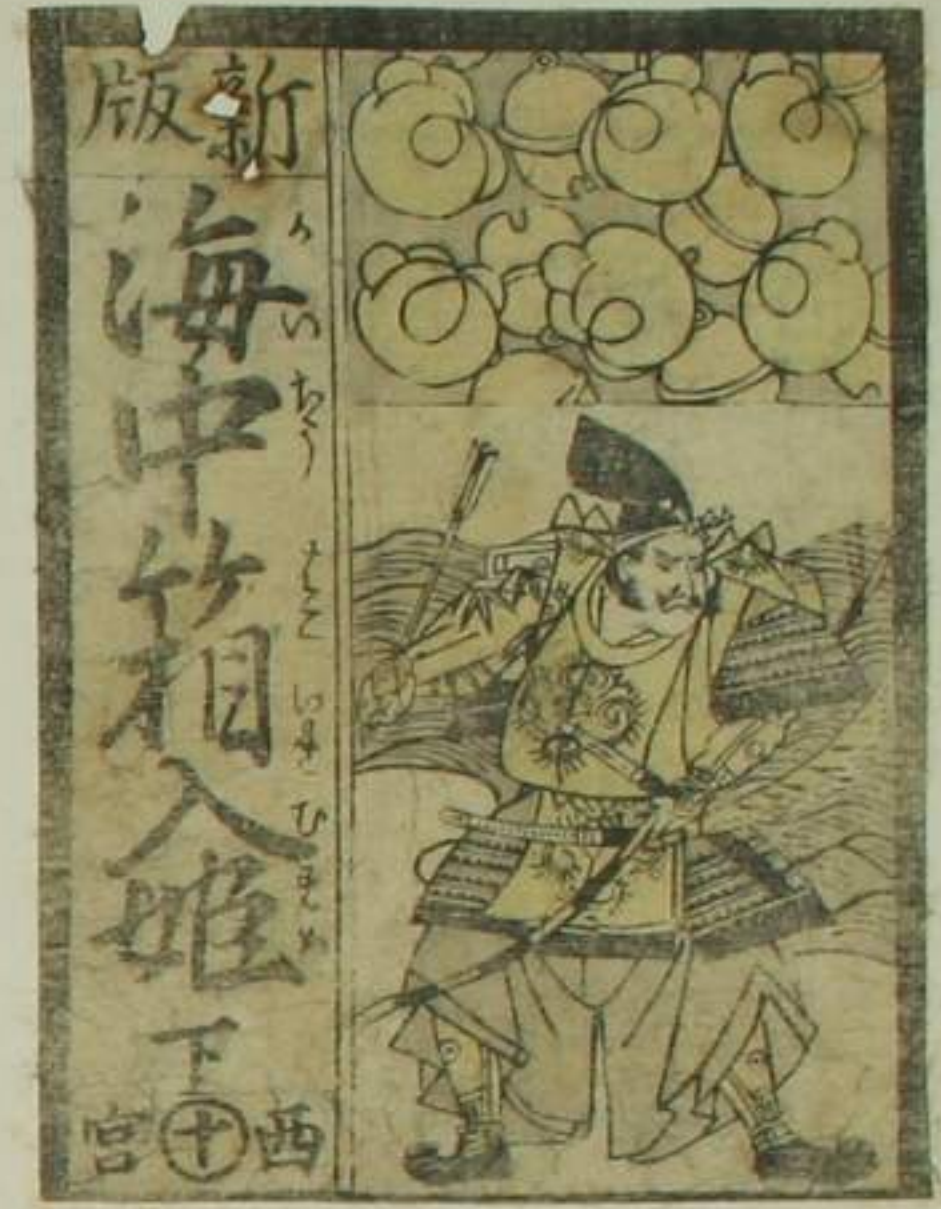 新版
海中箱入姫
かいちうはこ
下
西㊉宮